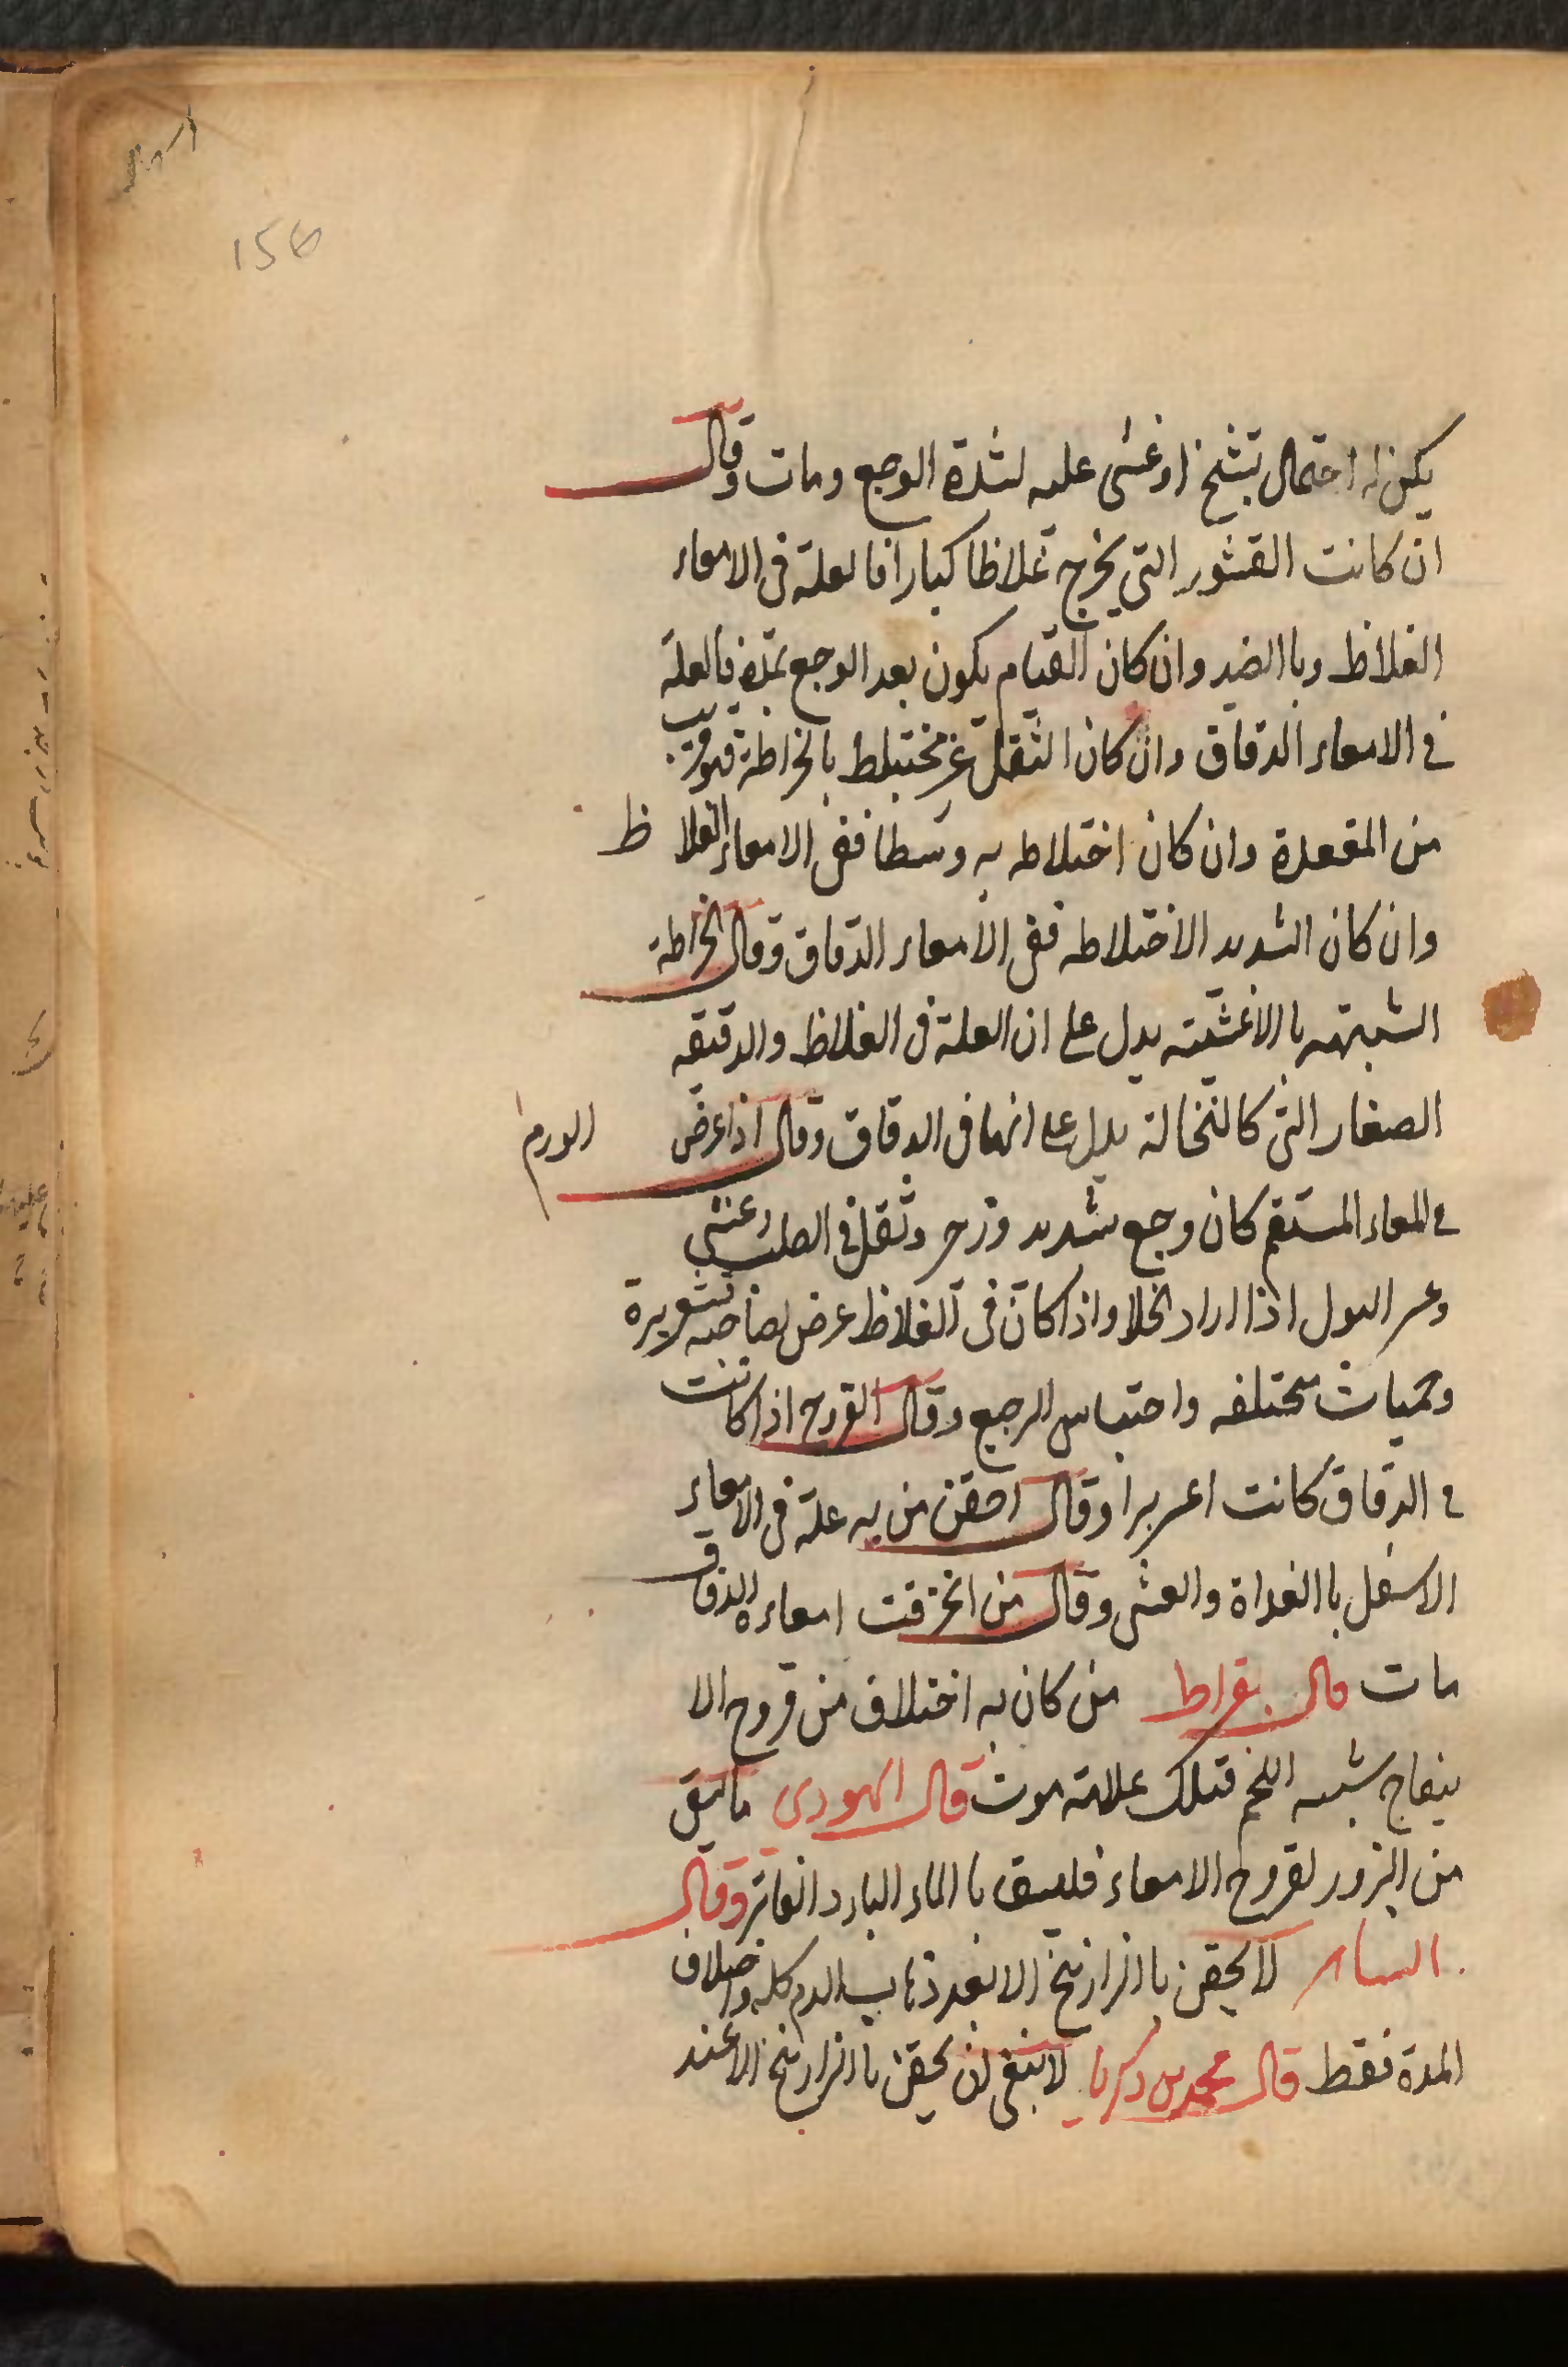 156
يكن له احتمال تشنج او غشى عليه لشدة الوجع ومات وقال
ان كانت القشور التى يخرج غلاظا كبارا فالعلة فى الامعاء
الغلاظ وبا الضد وان كان القيام يكون بعد الوجع بمدة فالعلة
فى الامعاء الدقاق وان كان الثقل غير مختبلط بالخراطة فهو قريب
من المقعدة وان كان اختلاطه به وسطا ففى الامعاء الغلاظ
وان كان الشديد الاختلاطه ففى الامعاء الدقاق وقال الخراطة
الشبيهه با الاغشيته يدل على ان العلة فى الغلاظ والدقيقه
الصغار التى كالنخالة يدل على انها فى الدقاق وقال اذا عرض الورم
فى المعاء المستقيم كان وجع شديد وزحر وثقل فى الصلب وغشى
وعسر البول اذا اراد الخلا واذا كان فى الغلاظ عرض لصاحبه قشعريرة
وحميات مختلفه واحتباس الرجيع وقال القروح اذا كانت
فى الدقاق كانت اعسر برا وقال احقن من به علة فى الامعاء
الاسفل با الغداة والعشى وقال من انخرقت امعاءه الدقاق
مات قال بقراط من كان به اختلاف من قروح الا
ينفاج شبيه اللحم فتلك علامة موت قال اليهودى ما يسقى
من البزور لقروح الامعاء فليسق با الماء البارد الفاتر وقال
الساهر لا يحقن با الزرازنيخ الا بعد ذهاب الدم كله واختلاف
المدة فقط قال محمد بن زكريا لا ينبغى ان يحقن با الزرازنيخ الا عند